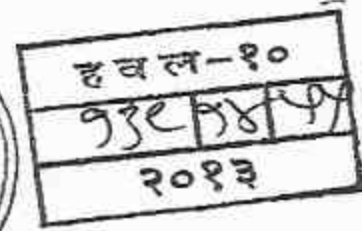 हवल-१०
१३९ १४ ५५
२०१३